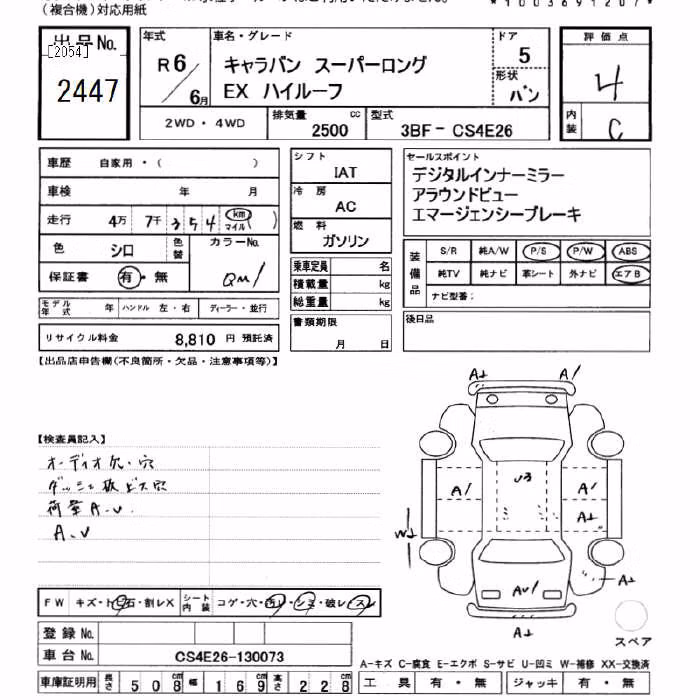 (複合機)対応用紙
*1003691207*
出品No.
[2054]
2447
年式
R6/6月
車名・グレード
キャラバン スーパーロング
EX ハイルーフ
ドア
5
形状
バン
評価点
4
内装
C
2WD・4WD
排気量
2500 cc
型式
3BF-CS4E26
車歴 自家用・( )
車検 年 月
走行 4万 7千 3 5 4 km マイル
色 シロ 色替
カラーNo.
QM1
保証書 有・無
モデル年式 年 ハンドル 左・右 ディーラー・並行
リサイクル料金 8,810 円 預託済
シフト
IAT
冷房
AC
燃料
ガソリン
乗車定員 名
積載量 kg
総重量 kg
書類期限
月 日
セールスポイント
デジタルインナーミラー
アラウンドビュー
エマージェンシーブレーキ
装備品
S/R 純A/W P/S P/W ABS
純TV 純ナビ 革シート 外ナビ エアB
ナビ型番:
後日品
【出品店申告欄(不良箇所・欠品・注意事項等)】
【検査員記入】
オーディオ欠・穴
ダッシュ板ビス穴
荷室A.U
A、U
A1
A1
A1
A1
A1
U3
W1
A1
AU1
A1
スペア
FW キズ・ト石・割レX シート内装 コゲ・穴・汚レ・シミ・破レ・スレ
登録No.
車台No. CS4E26-130073
車庫証明用 長さ 508cm 幅 169cm 高さ 228cm
A-キズ C-腐食 E-エクボ S-サビ U-凹ミ W-補修 XX-交換済
工具 有・無 ジャッキ 有・無